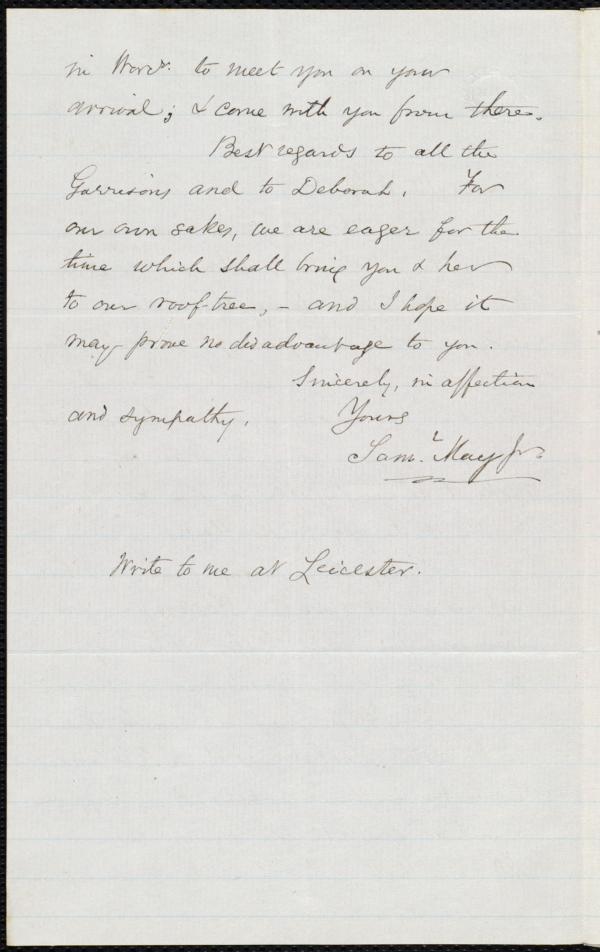 in Worcr. to meet you on your
arrival; & come with you from there.
Best regards to all the
Garrisons and to Deborah. For
our own sakes, we are eager for the
time which shall bring you & her
to our roof-tree, - and I hope it
may prove no disadvantage to you.
Sincerely, in affection
and sympathy,
Yours
Saml. May Jr.
Write to me at Leicester.